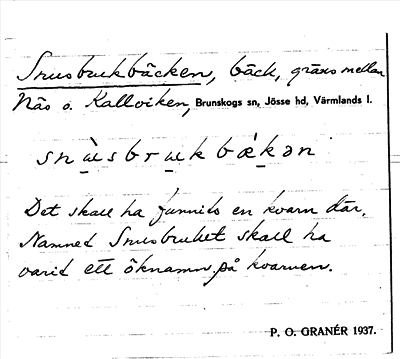 Snusbrukbäcken, bäck, gräns mellan
Näs o. Kallviken, Brunskogs sn, Jösse hd, Värmlands l.
snu̠̇sbru̠kbæ̇kən
Det skall ha funnits en kvarn där.
Namnet Snusbruket skall ha
varit ett öknamn på kvarnen.
P. O. GRANÉR 1937.